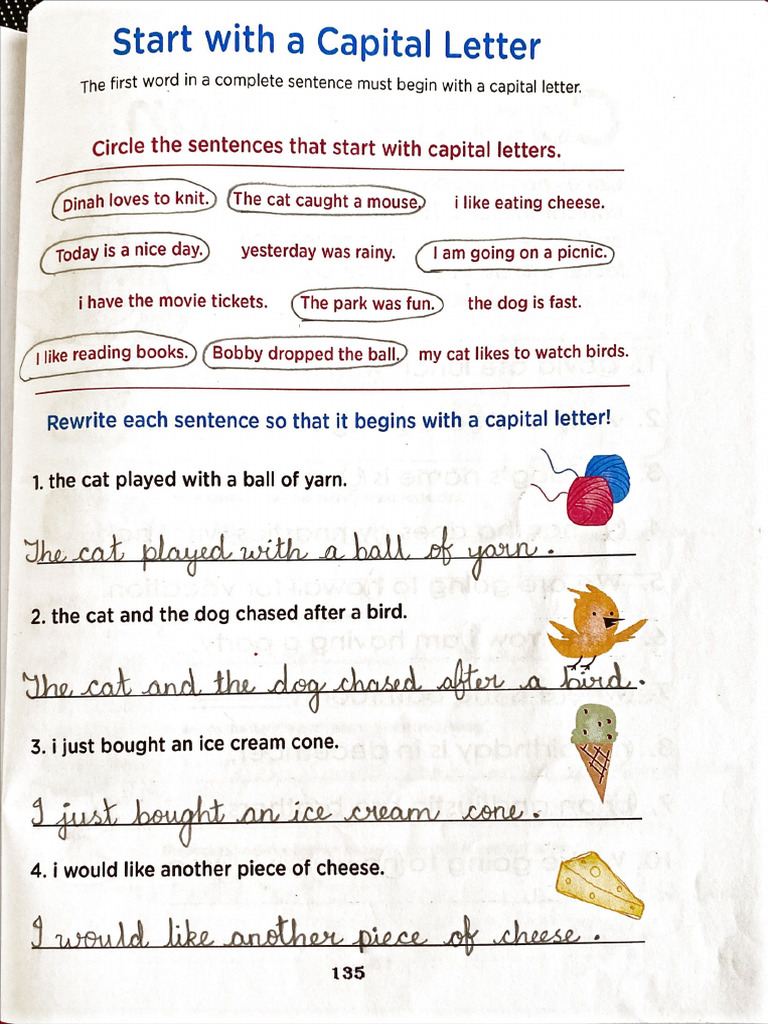 Start with a Capital Letter
The first word in a complete sentence must begin with a capital letter.
Circle the sentences that start with capital letters.
Dinah loves to knit. The cat caught a mouse. i like eating cheese.
Today is a nice day. yesterday was rainy. I am going on a picnic.
i have the movie tickets. The park was fun. the dog is fast.
I like reading books. Bobby dropped the ball. my cat likes to watch birds.
Rewrite each sentence so that it begins with a capital letter!
1. the cat played with a ball of yarn.
The cat played with a ball of yarn.
2. the cat and the dog chased after a bird.
The cat and the dog chased after a bird.
3. i just bought an ice cream cone.
I just bought an ice cream cone.
4. i would like another piece of cheese.
I would like another piece of cheese.
135